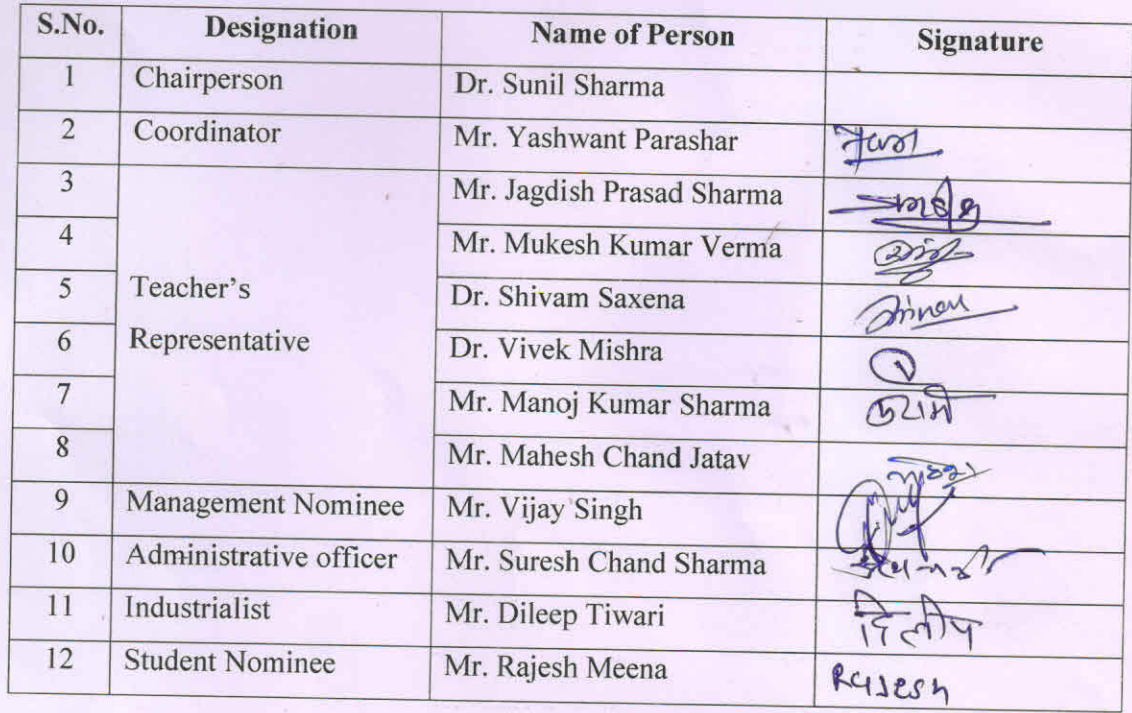 S.No. Designation Name of Person Signature
1 Chairperson Dr. Sunil Sharma
2 Coordinator Mr. Yashwant Parashar
3 Mr. Jagdish Prasad Sharma
4 Mr. Mukesh Kumar Verma
5 Teacher's Dr. Shivam Saxena
6 Representative Dr. Vivek Mishra
7 Mr. Manoj Kumar Sharma
8 Mr. Mahesh Chand Jatav
9 Management Nominee Mr. Vijay Singh
10 Administrative officer Mr. Suresh Chand Sharma
11 Industrialist Mr. Dileep Tiwari दिलीप
12 Student Nominee Mr. Rajesh Meena Rajesh